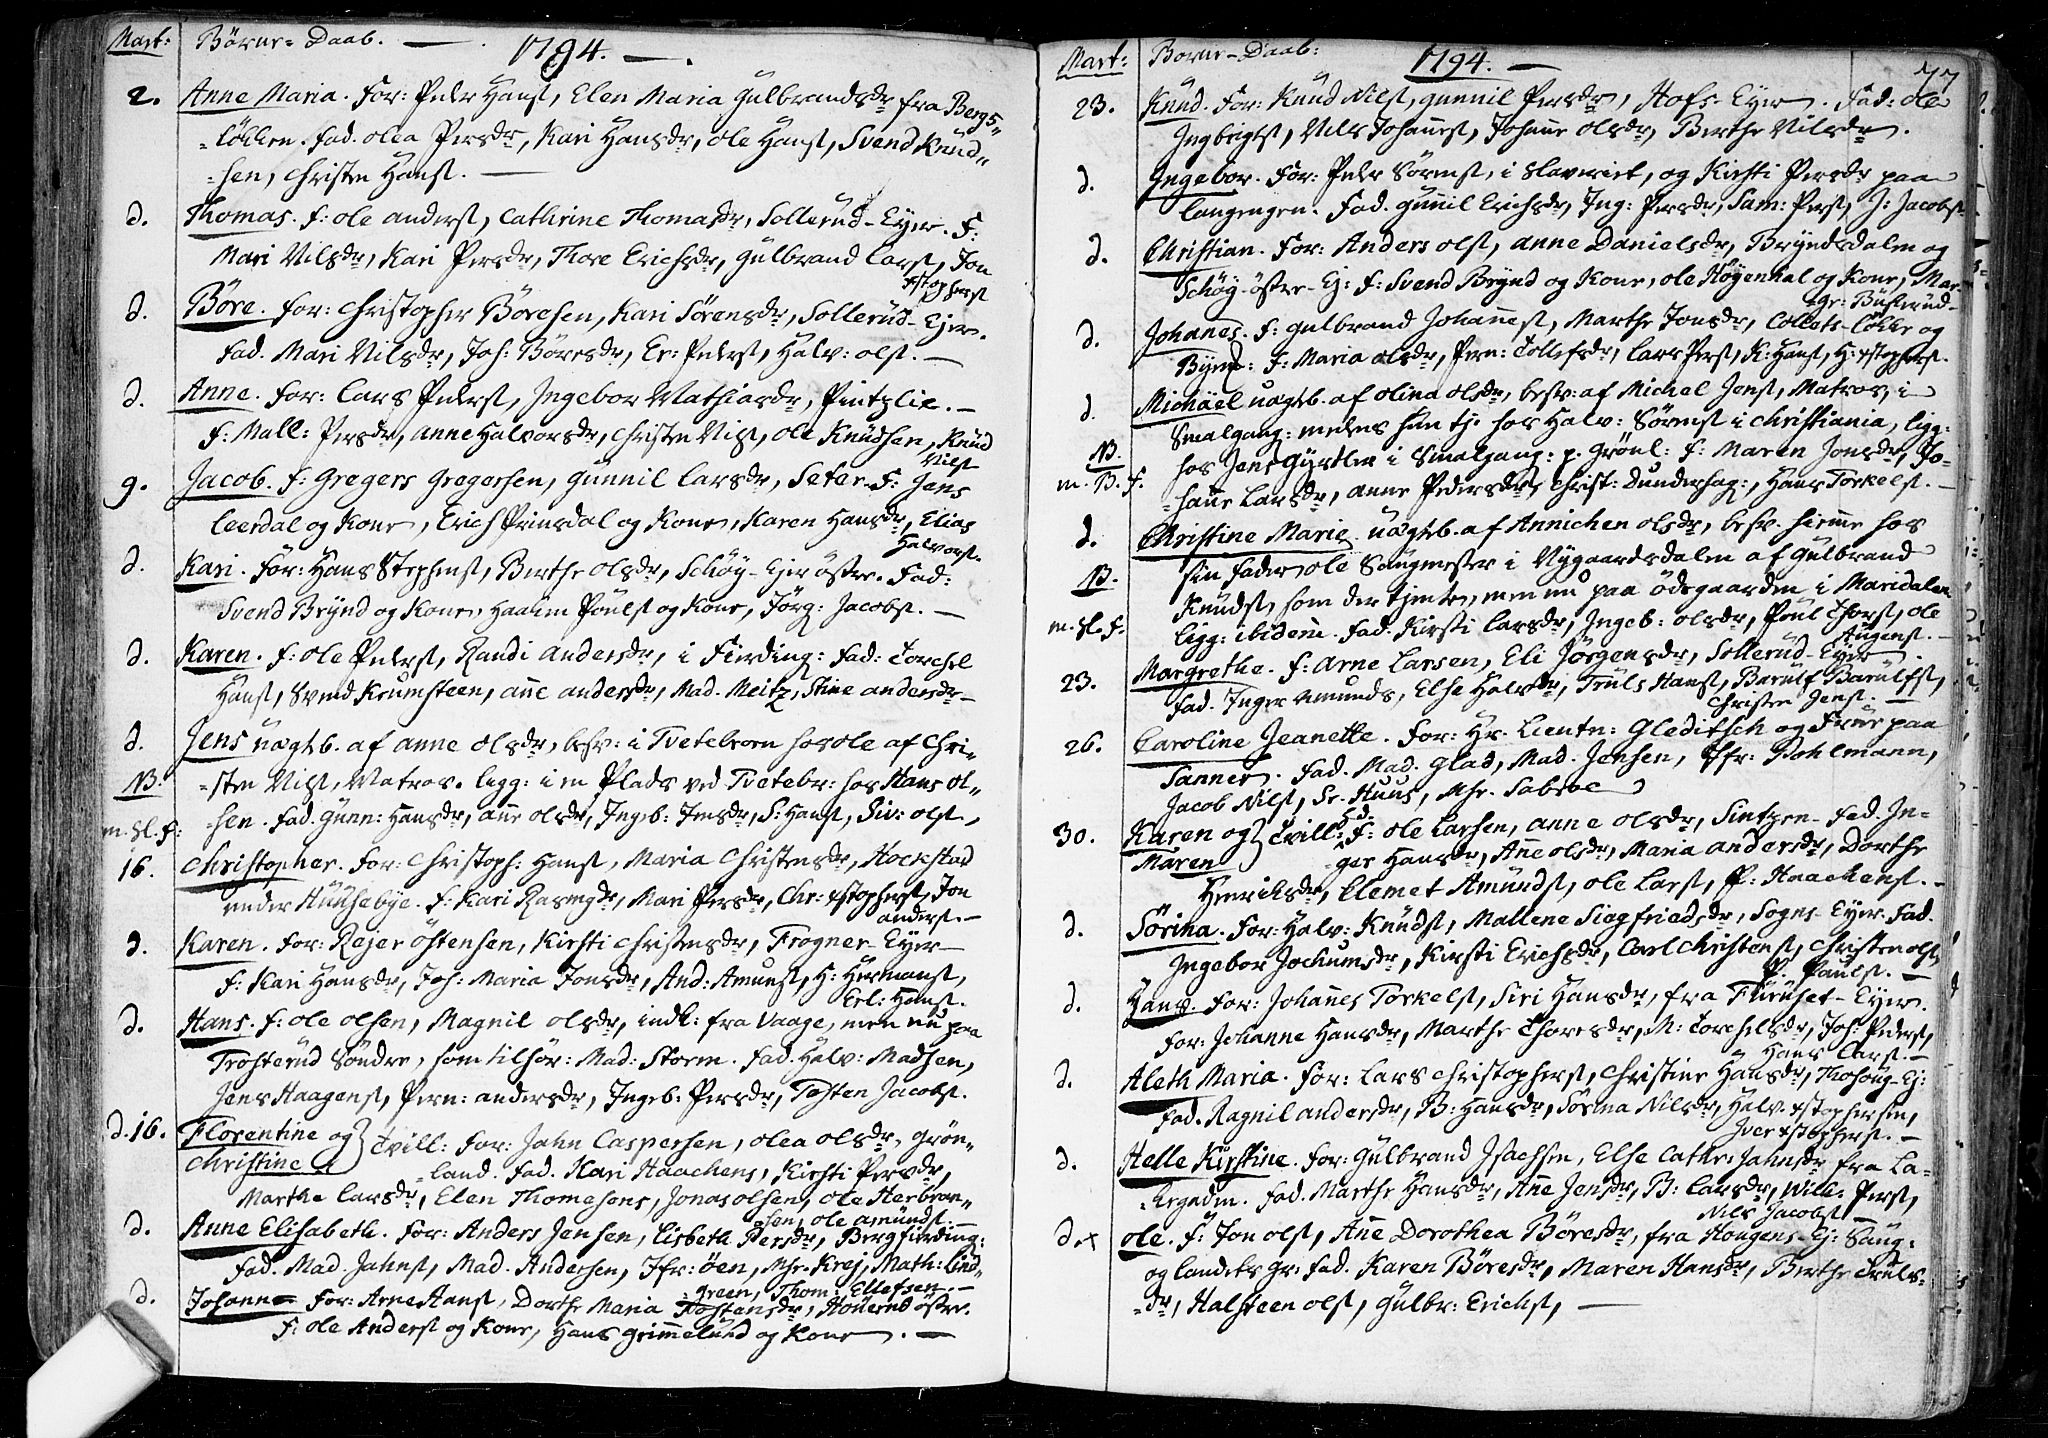 Mart: Børne-Daab. — 1794. —
2. Anne Maria. For: Peder Hans[en], Elen Maria Gulbrandsdr fra Bergs-
-løkken. Fad. Olea Persdr, Kari Hansdr, Ole Hans[en], Svend Knud-
-sen, Christen Hans[en]. —
d. Thomas. F: Ole Anders[en], Cathrine Thomasdr, Sollerud-Eyer. F:
Mari Nilsdr, Kari Persdr, Thore Erichsdr, Gulbrand Lars[en], Jon
xstophers[en]
d. Børe. For: Christopher Børesen, Kari Sørensdr, Sollerud-Ejer.
Fad. Mari Nilsdr, Joh: Børesdr, Er: Peders[en], Halv: Ols[en]. —
d. Anne. For: Lars Peders[en], Ingebor Mathiasdr, Pintzlie. —
F: Mall: Persdr, Anne Halvorsdr, Christen Nils[en], Ole Knudsen, Knud
Nils[en]
9. Jacob. F: Gregers Gregersen, Gunnil Larsdr, Seter. F: Jens
Leerdal og Kone, Erich Prinsdal og Kone, Karen Hansdr, Elias
Halvors[en].
d. Kari. For: Hans Stephens[en], Berthe Olsdr, Schøy-Ejer østre. Fad:
Svend Brynd og Kone, Haakon Pouls[en] og Kone, Jørg: Jacobs[en]. —
d. Karen. F: Ole Peders[en], Randi Andersdr, i Fierding: Fad: Torchel
Hans[en], Svend Krumsteen, Anne Andersdr, Mad. Meitz, Stine Andersdr —
d. Jens uægtb. af Anne Olsdr, besv: i Tvetebroen hos Ole af Chri-
NB. -sten Nils[en], Matros. ligg: i en Plads ved Tvetebr: hos Hans Ol-
m. Sl. F: -sen. Fad. Gunn: Hansdr, Anne Olsdr, Ingeb: Jensdr, S: Hans[en], Siv: Ols[en],
16. Christopher. For: Christoph: Hans[en], Maria Christensdr, Hockstad
under Huusebye. F: Kari Rasmgdr, Mari Persdr, Chr: xstophers[en], Jon
Anders[en]. —
d. Karen. For: Rejer Østensen, Kirsti Christensdr, Frogner-Eyer
F: Kari Hansdr, Joh: Maria Jonsdr, And: Amuns[en], H: Hermans[en],
Erl: Hans[en].
d. Hans. F: Ole Olsen, Magnil Olsdr, indk: fra Vaage, men nu paa
Trosterud Søndre, som tilhør: Mad: Storm. Fad. Halv: Madsen,
Jens Haagens[en], Pern: Andersdr, Ingeb: Persdr, Tosten Jacobs[en].
d.16. Florentine og Christine } Tvill: For: Jahn Caspersen, Olea Olsdr, Grøn-
-land. Fad. Kari Haachens, Kirsti Persdr,
Marthe Larsdr, Elen Thomesons, Jonas Olsen, Ole Herbran-
-sen, Ole Amunds[en]. —
d. Anne Elisabeth. For: Anders Jensen, Lisbeth Persdr, Bergfierding:
Fad. Mad. Jahns[en], Mad. Andersen, Jfr: Øen, Mhr. Krej, Math: Lind-
-green, Thom: Ellefsen. —
d. Johanne For: Arne Hans[en], Dorthe Maria Tostensdr, Houerud østre.
F: Ole Anders[en] og Kone, Hans Grimmelund og Kone. —
Mart: Børne-Daab: 1794. — 77
23. Knud. For: Knud Nils[en], Gunnil Persdr, Hofs-Eyer. Fad: Ole
Ingbrigts[en], Nils Johannes[en], Johanne Olsdr, Berthe Nilsdr.
d. Ingebor. For: Peder Sørens[en], i Slaveriet, og Kirsti Persdr paa
Langengen. Fad. Gunnil Erichsdr, Ing: Persdr, Sam: Pers[en], J: Jacobs[en]
d. Christian. For: Anders Ols[en], Anne Danielsdr, Bryndsdalen og
Schøy-østre-Ej: F: Svend Brynd og Kone, Ole Høyenhal og Kone, Mar-
-gr: Busterud-
d. Johanes. F: Gulbrand Johannes[en], Marthe Jonsdr, Collets-Løkke og
Bynd: F: Maria Olsdr, Pern: Tollefsdr, Lars Pers[en], K: Hans[en], H: xstophers[en].
d. Michäel uægtb. af Olina Olsdr, besv: af Michel Jens[en], Matros, i
Smalgang: medens hun tj. hos Halv: Sørens[en] i Christiania, ligg:
NB. hos Jens Gyrtler i Smalgang: p. Grønl: F: Maren Jonsdr, Jo-
m. B. F. -hanne Larsdr, Anne Pedersdr, Christ: Dunderhag:, Hans Torkels[en]. —
d. Christine Marie uægtb. af Annichen Olsdr, besv. hiemme hos
sin Fader Ole Saugmester i Nygaardsdalen af Gulbrand
NB. Knuds[en], som der tjente, men nu paa Ødegaarden i Maridalen
m. Sl. F: ligg: ibidem. Fad. Kirsti Larsdr, Ingeb: Olsdr, Poul Thors[en], Ole
Augens[en]. —
23. Margrethe. F: Arne Larsen, Eli Jørgensdr, Sollerud-Eyer
Fad. Inger Amunds, Else Halvdr, Truls Hans[en], Barulf Barulfs[en],
Christen Jens[en]. —
26. Caroline Jeanette. For: Hr. Lieutn: Gleditsch og Frue paa
Sanner. Fad. Mad. Glad, Mad. Jensen, Jfr: Pohlmann,
Jacob Nils[en], Sr. Huus, Mhr. Sabroe
30. Karen og Maren } Tvill: F: Ole Larsen, Anne Olsdr, Sintzen. Fad. In-
-ger Hansdr, Anne Olsdr, Maria Andersdr, Dorthe
Henriksdr, Clemet Amunds[en], Ole Lars[en], P: Haachens[en]. —
d. Sørina. For: Halv: Knuds[en], Mallene Siegfriedsdr, Sogns-Eyer. Fad.
Ingebor Jochumsdr, Kirsti Erichsdr, Carl Christens[en], Christen Ols[en],
P. Pauls[en]. —
d. Hans. For: Johannes Torkels[en], Siri Hansdr, fra Furuset-Eyer.
For: Johanne Hansdr, Marthe Thoresdr, M: Torchelsdr, Joh: Peders[en],
Hans Lars[en]. —
d. Aleth Maria. For: Lars Christophers[en], Christine Hansdr, Thosoug-Ej:
Fad. Ragnil Andersdr, B: Hansdr, Sørina Nilsdr, Halv. xstophersen,
Iver xstophers[en]. —
d. Helle Kirstine. For: Gulbrand Isachsen, Else Cathr: Jahnsdr fra La-
-kegaden. Fad. Marthe Hansdr, Anne Jensdr, B: Larsdr, Will: Pers[en],
Nils Jacobs[en] —
d. x Ole. F: Jon Ols[en], Anne Dorothea Børesdr, fra Hougens-Ej: Saug-
og Landets Gr: Fad. Karen Børesdr, Maren Hansdr, Berthe Truls-
-dr, Halsteen Ols[en], Gulbr: Erichs[en], —